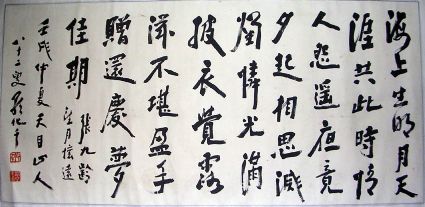 海上生明月天
涯共此時情
人怨遙夜竟
夕起相思滅
燭憐光滿
披衣覺露
滋不堪盈手
贈還寢夢
佳期
張九齡
望月懷遠
壬戌仲夏天目山人
八十二叟